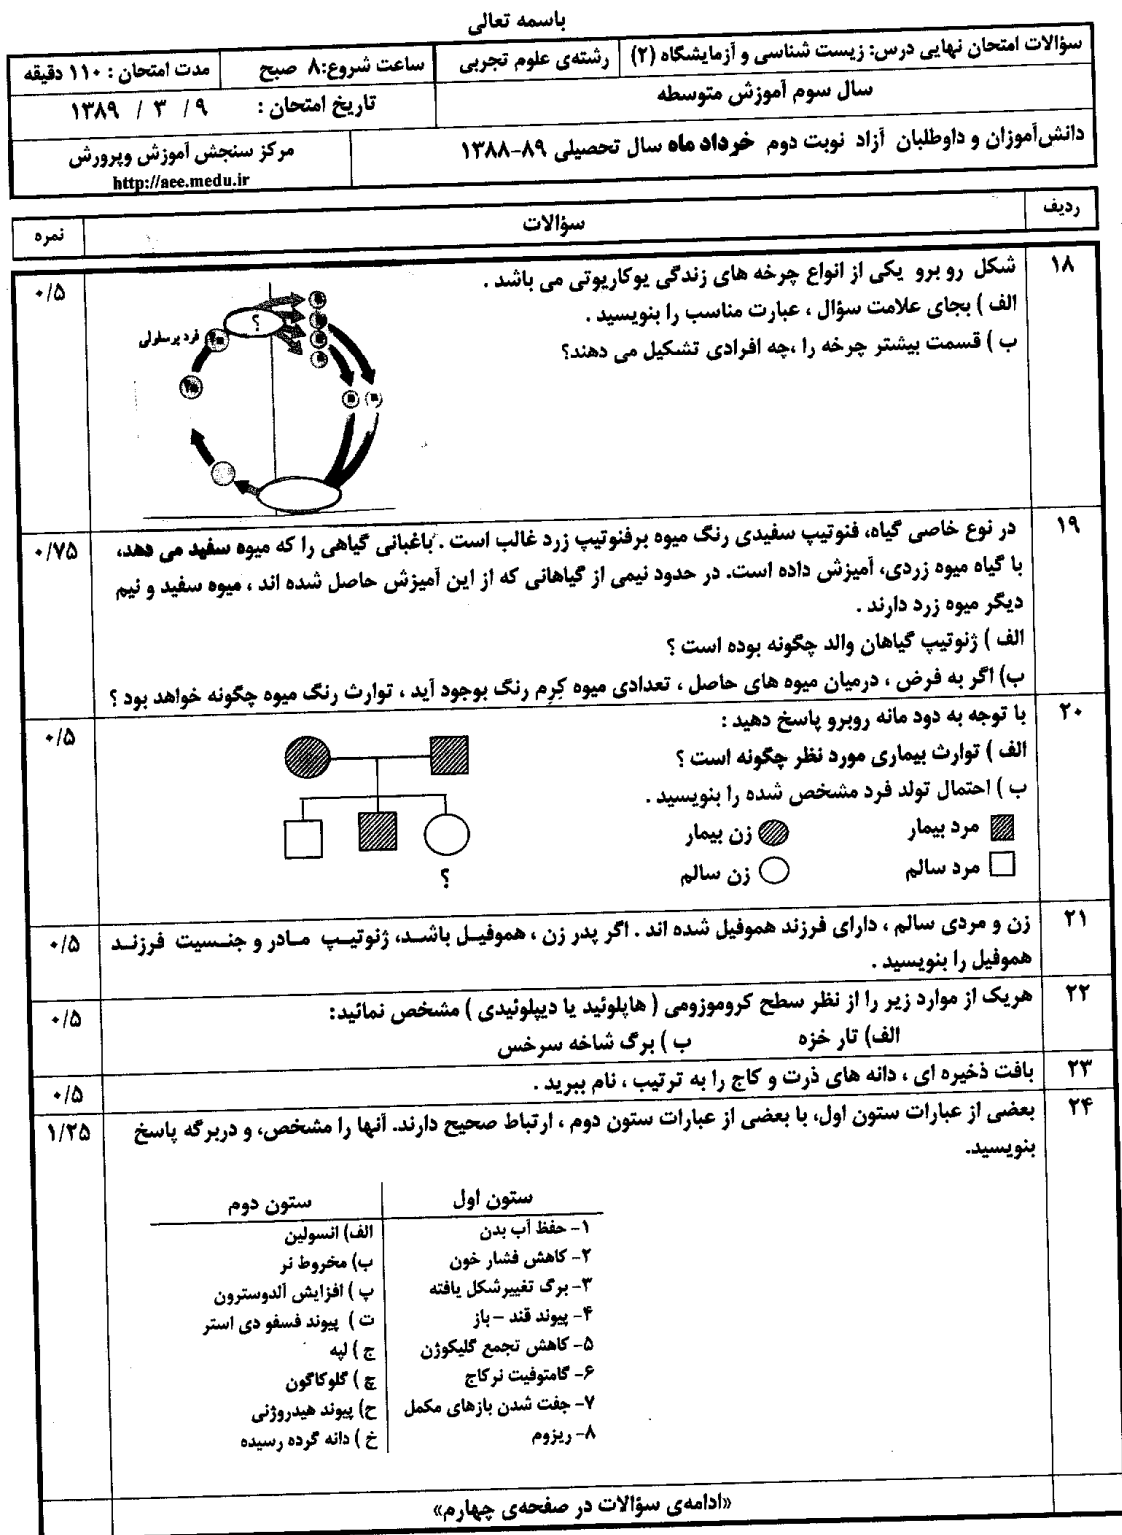 باسمه تعالی
سؤالات امتحان نهایی درس: زیست شناسی و آزمایشگاه (۲) رشته‌ی علوم تجربی ساعت شروع:۸ صبح مدت امتحان : ۱۱۰ دقیقه
سال سوم آموزش متوسطه تاریخ امتحان : ۹ / ۳ / ۱۳۸۹
دانش‌آموزان و داوطلبان آزاد نوبت دوم خرداد ماه سال تحصیلی ۸۹-۱۳۸۸ مرکز سنجش آموزش وپرورش
http://aee.medu.ir
ردیف سؤالات نمره
۱۸ شکل رو برو یکی از انواع چرخه های زندگی یوکاریوتی می باشد . ۰/۵
الف ) بجای علامت سؤال ، عبارت مناسب را بنویسید .
ب ) قسمت بیشتر چرخه را ،چه افرادی تشکیل می دهند؟
؟
فرد پرسلولی
۱۹ در نوع خاصی گیاه، فنوتیپ سفیدی رنگ میوه برفنوتیپ زرد غالب است . باغبانی گیاهی را که میوه سفید می دهد، ۰/۷۵
با گیاه میوه زردی، آمیزش داده است. در حدود نیمی از گیاهانی که از این آمیزش حاصل شده اند ، میوه سفید و نیم
دیگر میوه زرد دارند .
الف ) ژنوتیپ گیاهان والد چگونه بوده است ؟
ب) اگر به فرض ، درمیان میوه های حاصل ، تعدادی میوه کرِم رنگ بوجود آید ، توارث رنگ میوه چگونه خواهد بود ؟
۲۰ با توجه به دود مانه روبرو پاسخ دهید : ۰/۵
الف ) توارث بیماری مورد نظر چگونه است ؟
ب ) احتمال تولد فرد مشخص شده را بنویسید .
مرد بیمار زن بیمار
مرد سالم زن سالم
؟
۲۱ زن و مردی سالم ، دارای فرزند هموفیل شده اند . اگر پدر زن ، هموفیـل باشـد، ژنوتیـپ مـادر و جنـسیت فرزنـد ۰/۵
هموفیل را بنویسید .
۲۲ هریک از موارد زیر را از نظر سطح کروموزومی ( هاپلوئید یا دیپلوئیدی ) مشخص نمائید: ۰/۵
الف) تار خزه ب ) برگ شاخه سرخس
۲۳ بافت ذخیره ای ، دانه های ذرت و کاج را به ترتیب ، نام ببرید . ۰/۵
۲۴ بعضی از عبارات ستون اول، با بعضی از عبارات ستون دوم ، ارتباط صحیح دارند. آنها را مشخص، و دربرگه پاسخ ۱/۲۵
بنویسید.
ستون اول ستون دوم
۱- حفظ آب بدن الف) انسولین
۲- کاهش فشار خون ب) مخروط نر
۳- برگ تغییرشکل یافته پ ) افزایش آلدوسترون
۴- پیوند قند – باز ت ) پیوند فسفو دی استر
۵- کاهش تجمع گلیکوژن ج ) لپه
۶- گامتوفیت نرکاج چ ) گلوکاگون
۷- جفت شدن بازهای مکمل ح) پیوند هیدروژنی
۸- ریزوم خ ) دانه گرده رسیده
«ادامه‌ی سؤالات در صفحه‌ی چهارم»